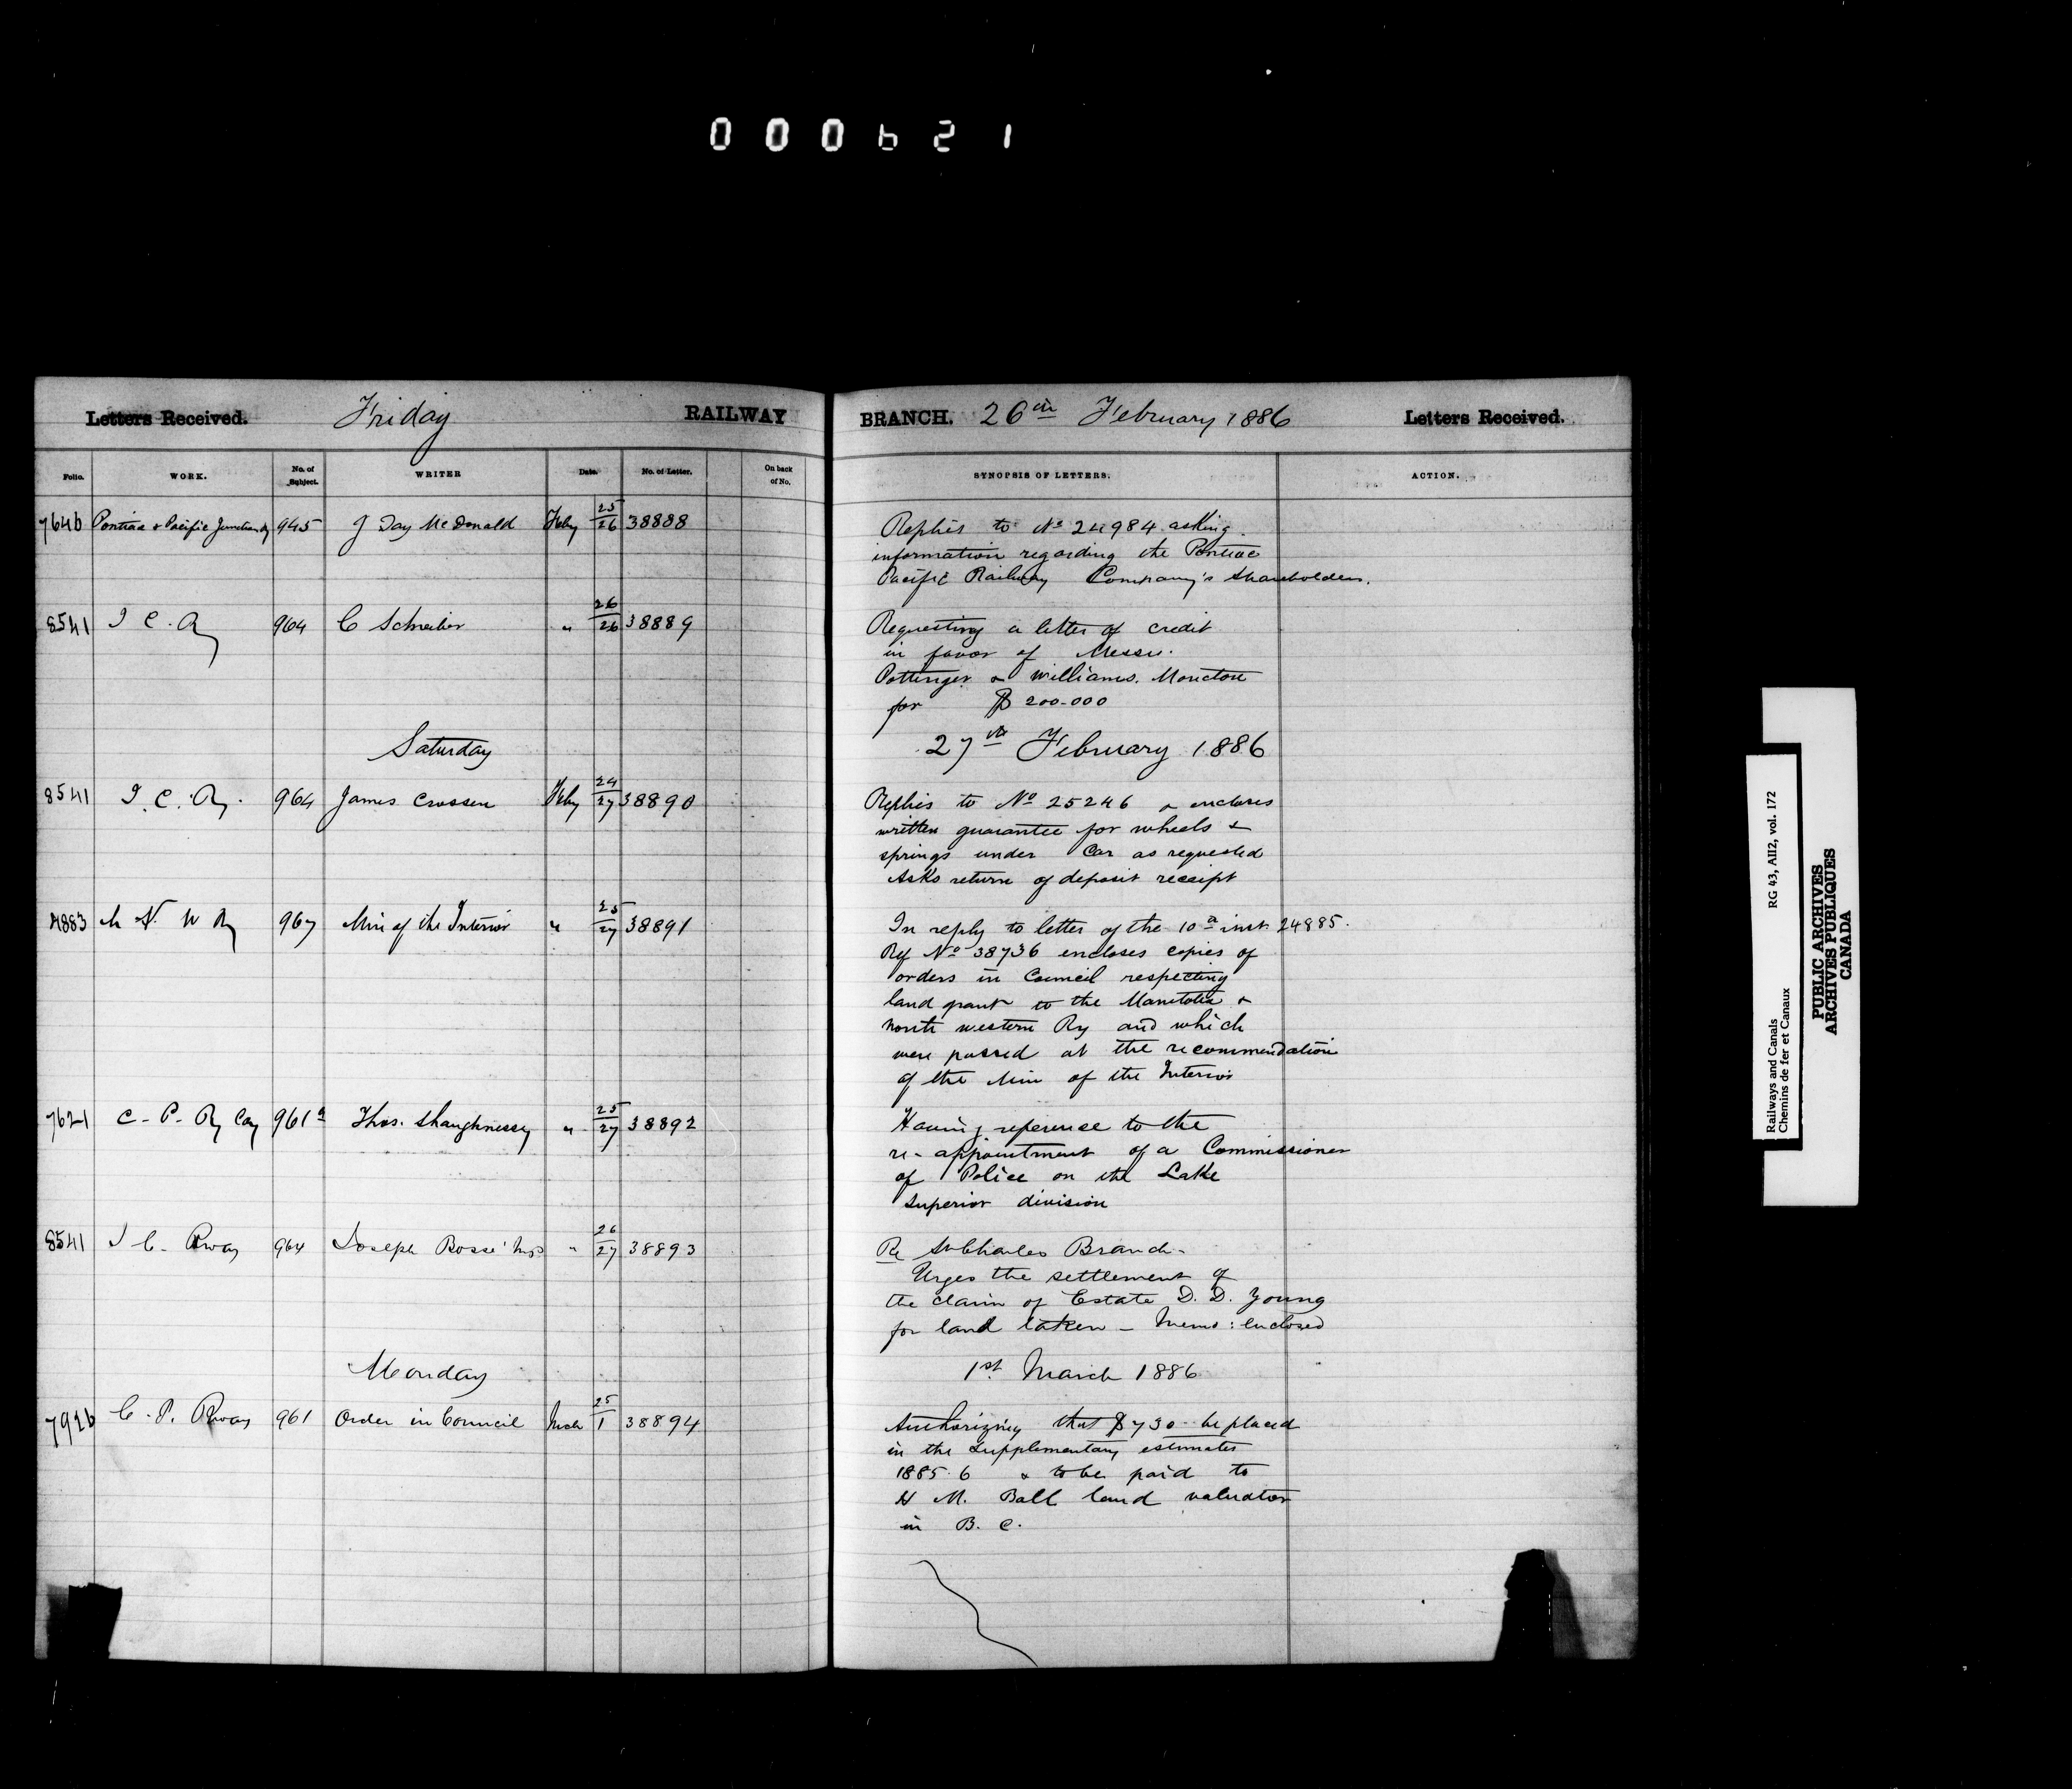 000621
Letters Received. Friday RAILWAY
BRANCH. 26th February 1886 Letters Received.
Folio. WORK. No. of Subject. WRITER Date. No. of Letter. On back of No.
SYNOPSIS OF LETTERS. ACTION.
7646 Pontiac & Pacific Junction Ry 945 J Day McDonald Feby 25/26 38888
Replies to No 24984 asking
information regarding the Pontiac
Pacific Railway Company's shareholders.
8541 I C. Ry 964 C Schreiber " 26/26 38889
Requesting a letter of credit
in favor of Messrs.
Pottinger & Williams. Moncton
for $200.000
Saturday
27th February 1886
8541 I. C. Ry. 964 James Crossen Feby 24/27 38890
Replies to No 25246 & encloses
written guarantee for wheels &
springs under Car as requested
Asks return of deposit receipt
4883 M N. W Ry 967 Min of the Interior " 25/27 38891
In reply to letter of the 10th inst 24885.
Ref No 38736 encloses copies of
orders in Council respecting
land grant to the Manitoba &
north western Ry and which
were passed at the recommendation
of the Min of the Interior
7621 C. P. Ry Coy 961a Thos. Shaughnessy " 25/27 38892
Having reference to the
re-appointment of a Commissioner
of Police on the Lake
Superior division
8541 I C. Rway 964 Joseph Bossé " 26/27 38893
Re St Charles Branch-
Urges the settlement of
the claim of Estate D. D. Young
for land taken - Memo: enclosed
Monday
1st March 1886
7926 C. P. Rway 961 Order in Council Mch 25/1 38894
Authorizing that $730 be placed
in the Supplementary estimates
1885.6 & to be paid to
H M. Ball land valuator
in B. C.
Railways and Canals RG 43, AII2, vol. 172
Chemins de fer et Canaux
PUBLIC ARCHIVES
ARCHIVES PUBLIQUES
CANADA